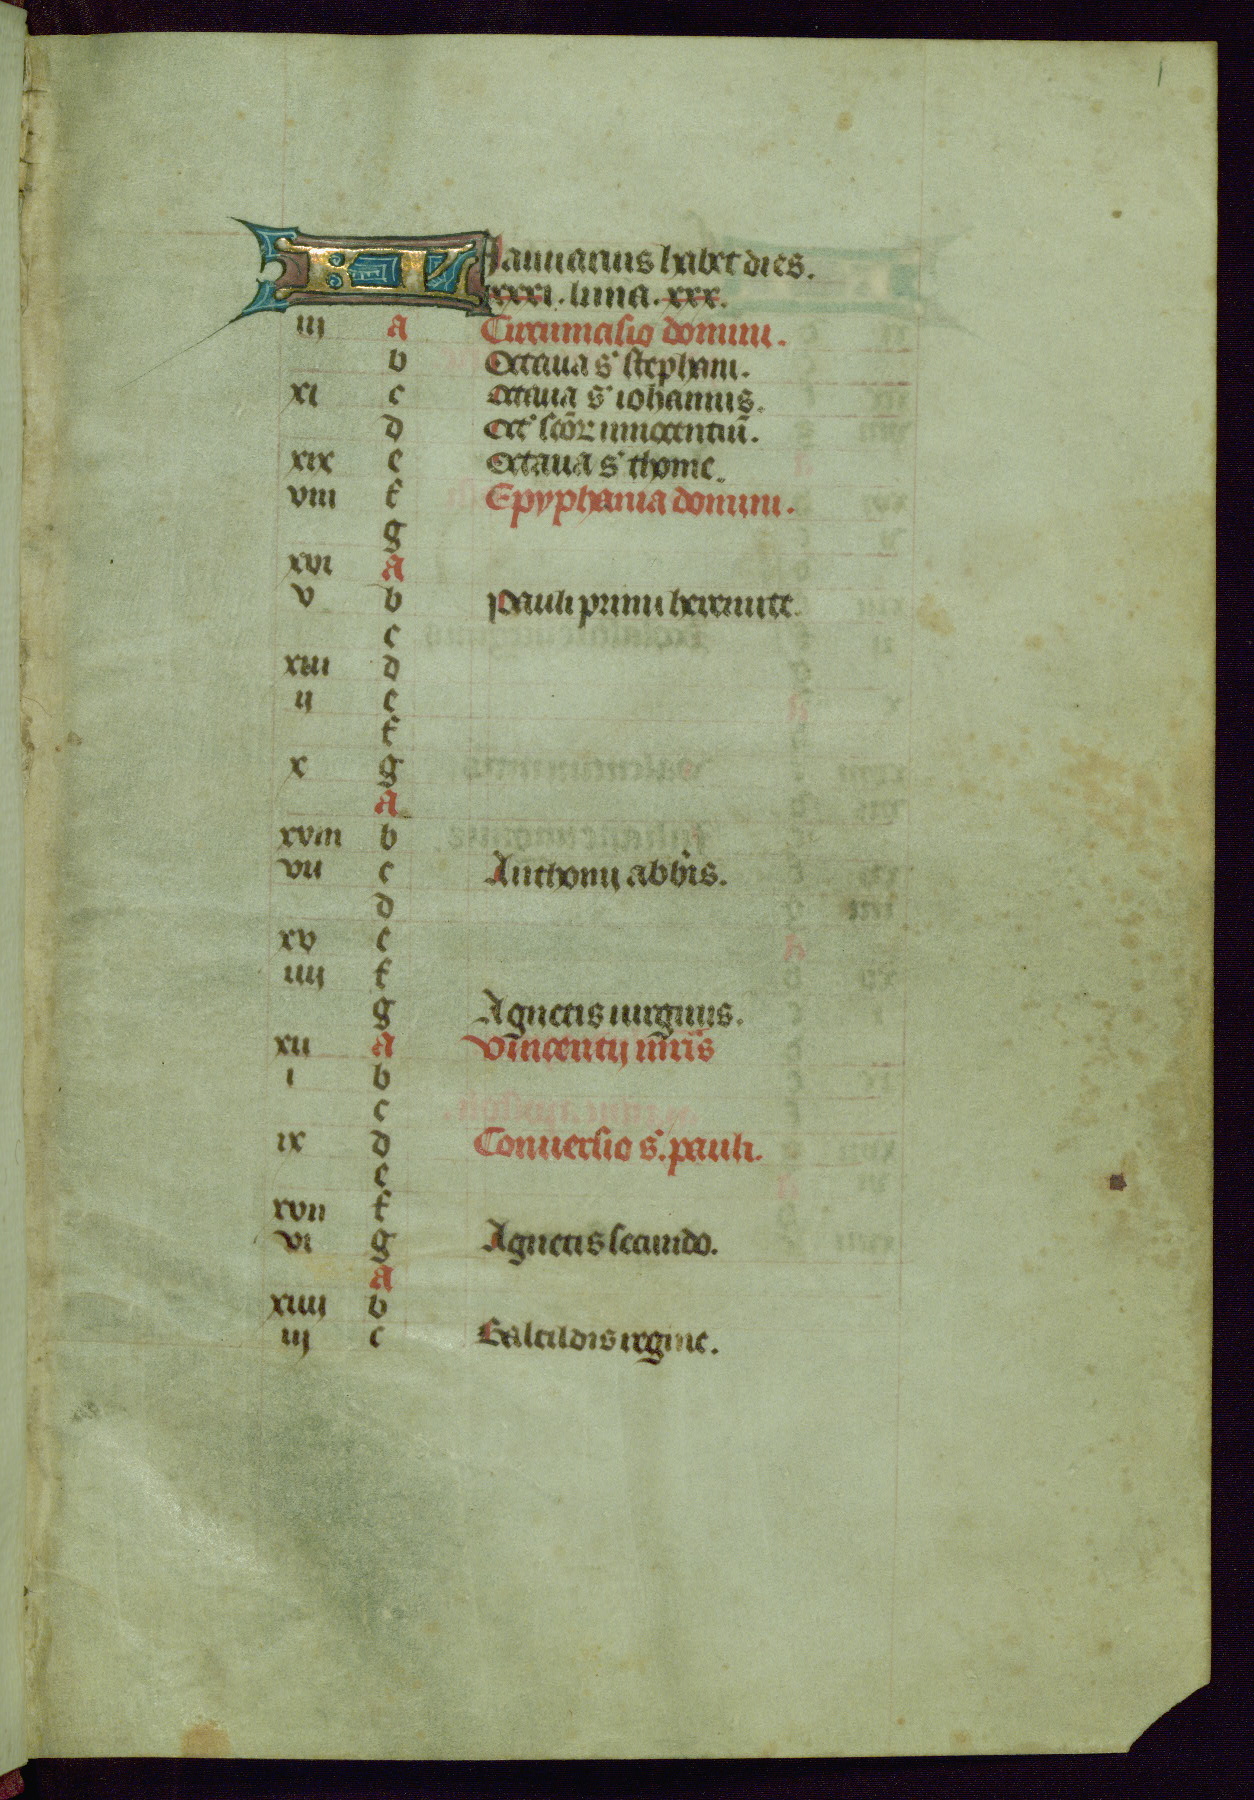 1
KL Januarius habet dies.
xxxi. luna. xxx.
iij a Circumcisio domini.
b Octaua s' stephani.
xi c octaua s' iohannis.
d oct' scōrꝝ innocentiū.
xix e Octaua s' thome.
viii f Epyphania domini.
g
xvi a
v b pauli primi heremite.
c
xiii d
ij e
f
x g
a
xviii b
vii c Anthonij abbis.
d
xv e
iiij f
g Agnetis uirginis.
xii a Vincentij mris
i b
c
ix d Conuersio s'. pauli.
e
xvii f
vi g Agnetis secundo.
a
xiiii b
iij c Baltildis regine.